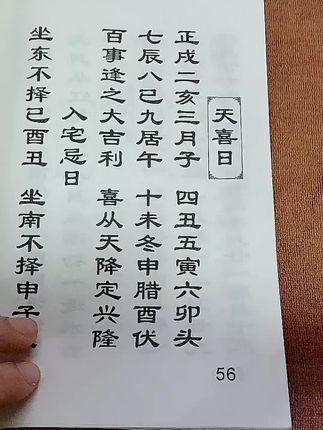 天喜日
正戌二亥三月子 四丑五寅六卯头
七辰八巳九居午 十未冬申腊酉伏
百事逢之大吉利 喜从天降定兴隆
入宅忌日
坐东不择巳酉丑 坐南不择申子
56